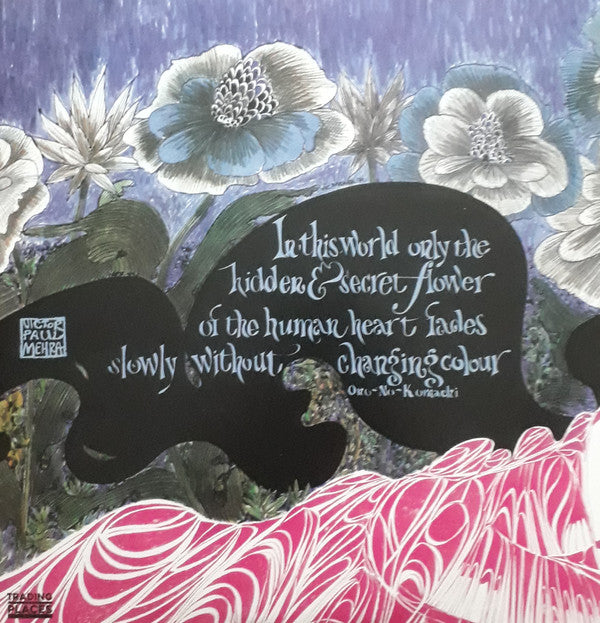 In this world only the
hidden & secret flower
of the human heart fades
slowly without changing colour
Ono-No-Komachi
VICTOR
PAUL
MEHRA
TRADING
PLACES